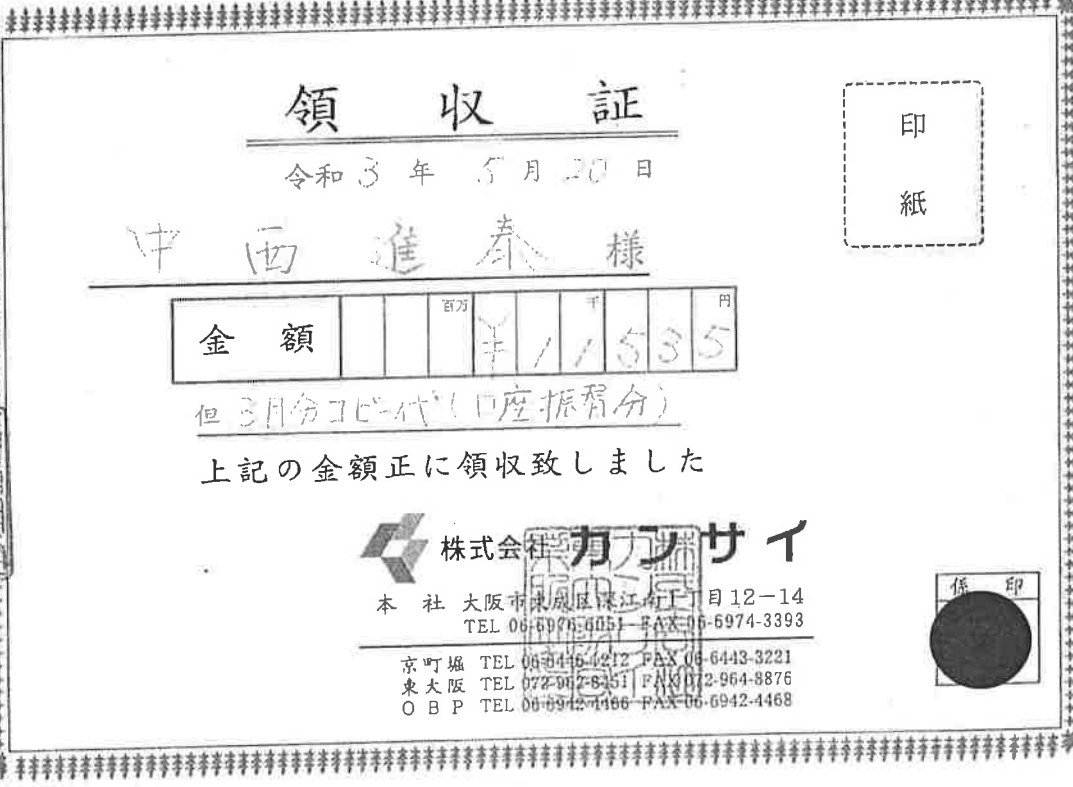 領収証
印紙
令和3年5月20日
中西進泰様
金額 百万 千 円 ¥11535
但 3月分コピー代(口座振替分)
上記の金額正に領収致しました
株式会社カンサイ
本社 大阪市東成区深江南1丁目12-14
TEL 06-6976-6051 FAX 06-6974-3393
京町堀 TEL 06-6446-4212 FAX 06-6443-3221
東大阪 TEL 072-962-8451 FAX 072-964-8876
OBP TEL 06-6942-4466 FAX 06-6942-4468
係印